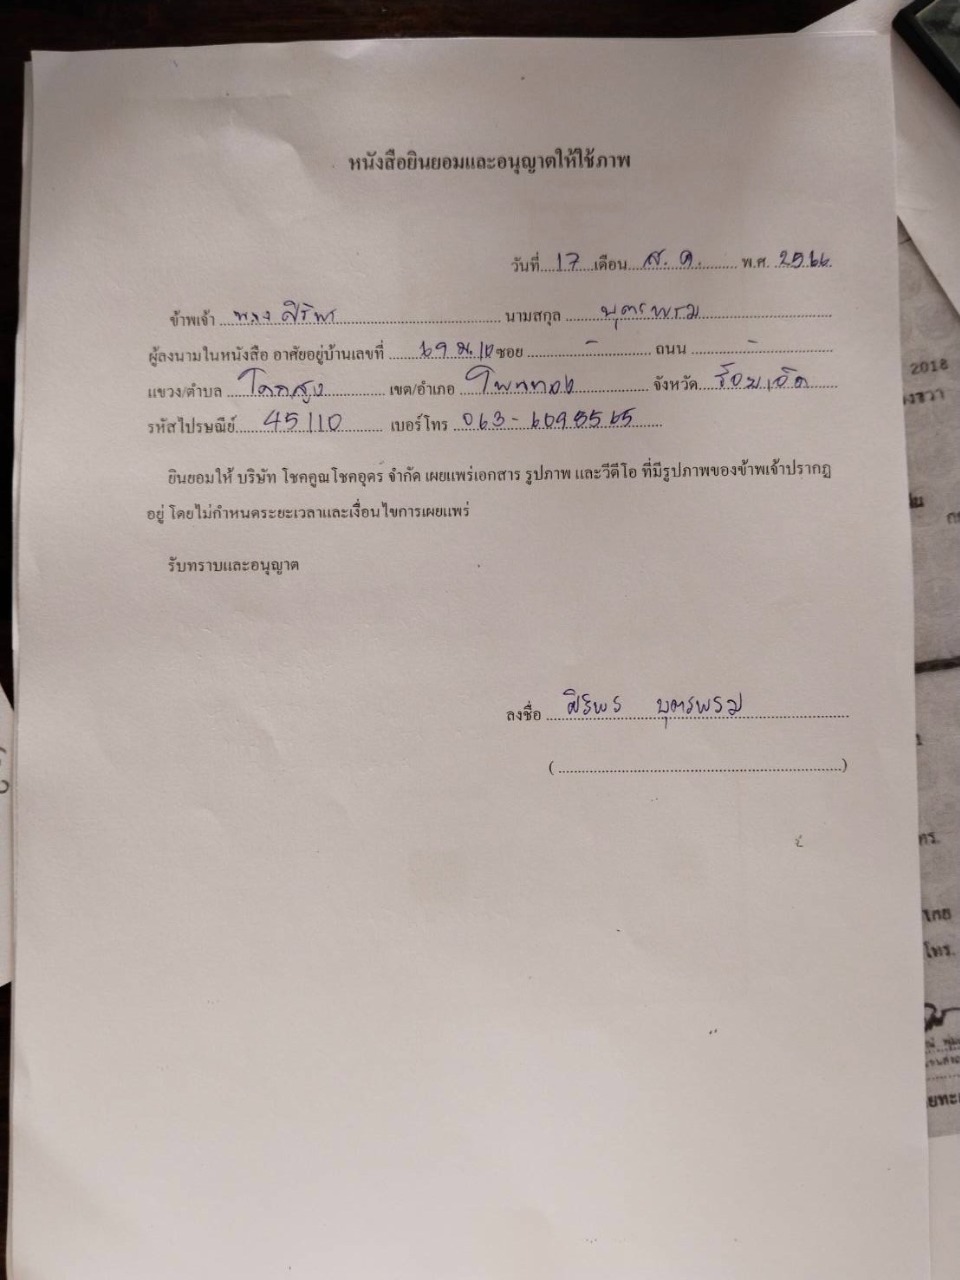 หนังสือยินยอมและอนุญาตให้ใช้ภาพ
วันที่ 17 เดือน ส.ค. พ.ศ. 2566
ข้าพเจ้า นาง ศิริพร นามสกุล บุตรพรม
ผู้ลงนามในหนังสือ อาศัยอยู่บ้านเลขที่ 69 ม.10 ซอย - ถนน -
แขวง/ตำบล โคกสูง เขต/อำเภอ โพนทอง จังหวัด ร้อยเอ็ด
รหัสไปรษณีย์ 45110 เบอร์โทร 063-6095565
ยินยอมให้ บริษัท โชคคูณโชคอุดร จำกัด เผยแพร่เอกสาร รูปภาพ และวีดีโอ ที่มีรูปภาพของข้าพเจ้าปรากฏ
อยู่ โดยไม่กำหนดระยะเวลาและเงื่อนไขการเผยแพร่
รับทราบและอนุญาต
ลงชื่อ ศิริพร บุตรพรม
(                    )
2018
โทร.